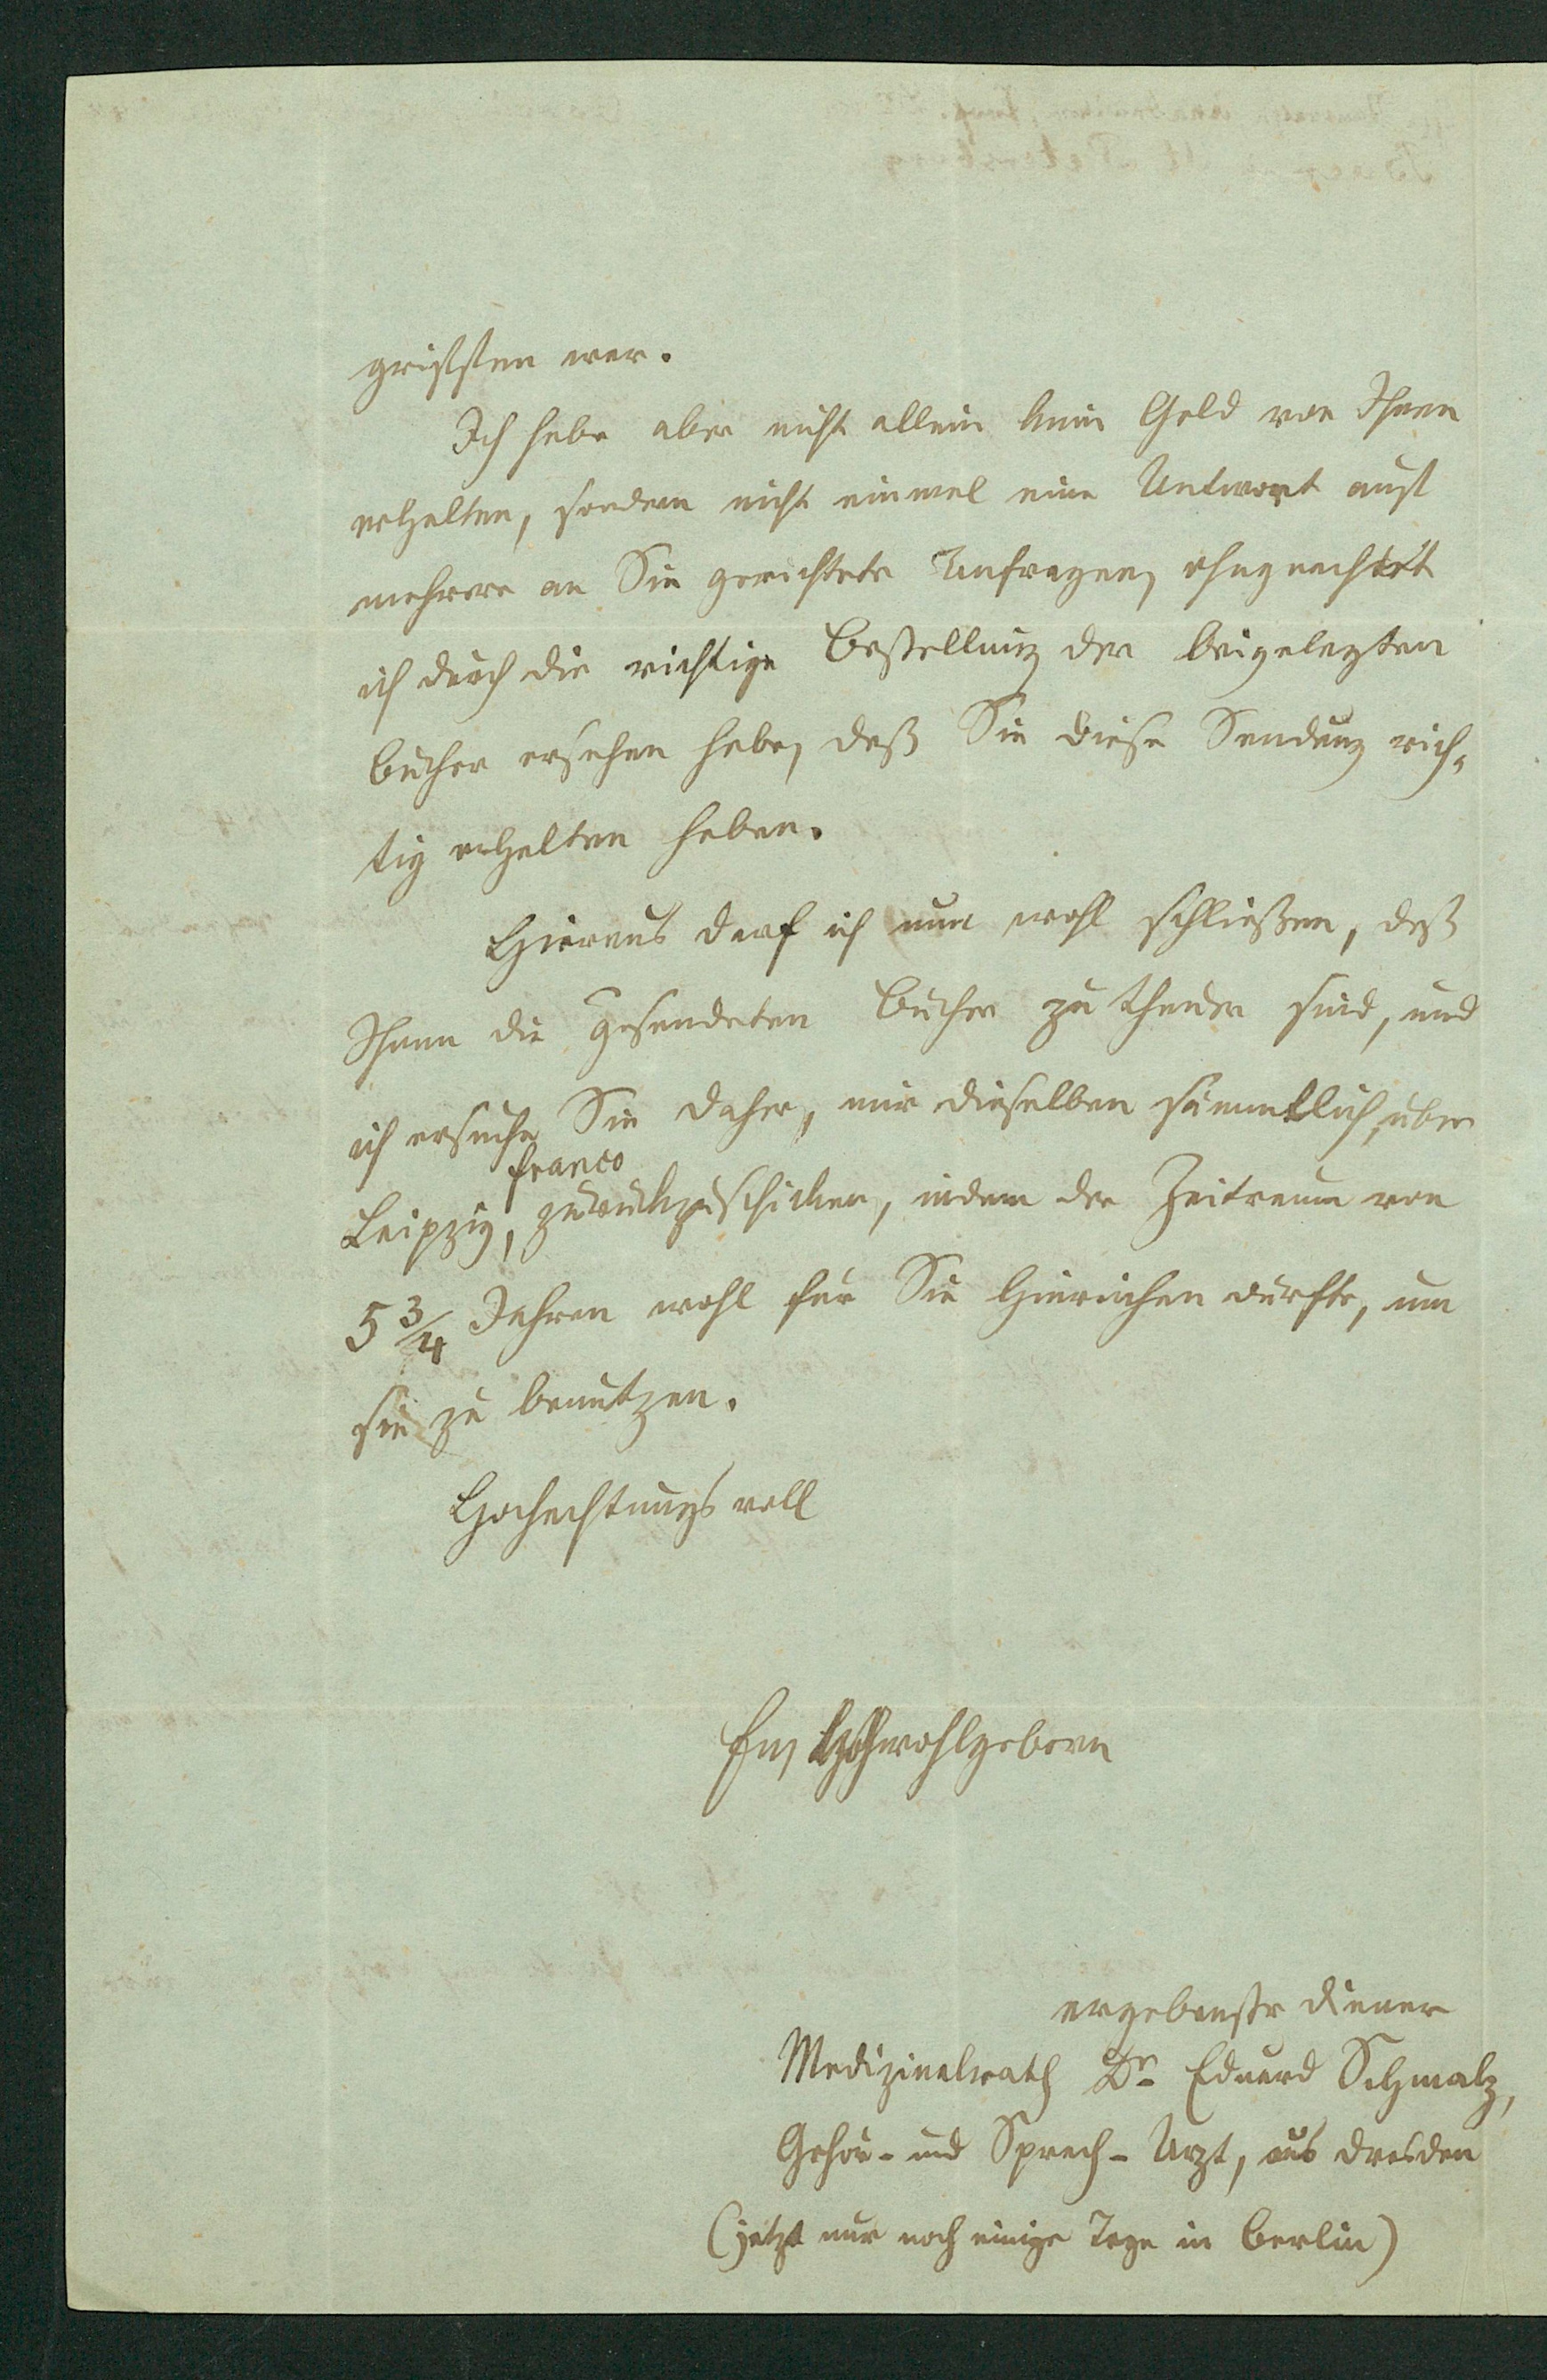 griffen war.
Ich habe aber nicht allein kein Geld von Ihnen
erhalten, sondern nicht einmal eine Antwort auf
mehrere an Sie gerichtete Anfragen, ohngeachtet
ich durch die richtige Bestellung der beigelegten
Bücher ersehen habe, daß Sie diese Sendung rich-
tig erhalten haben.
Hieraus darf ich nun wohl schließen, daß
Ihnen die gesendeten Bücher zu theuer sind, und
ich ersuche Sie daher, mir dieselben sämmtlich, über
franco
Leipzig, zurückzuschicken, indem der Zeitraum von
5 3/4 Jahren wohl für Sie hinreichen dürfte, um
sie zu benutzen.
Hochachtungsvoll
Ew. Hochwohlgeborn
ergebenster Diener
Medizinalrath Dr. Eduard Schmalz,
Gehör- und Sprach-Arzt, aus Dresden
(jetzt nur noch einige Tage in Berlin)